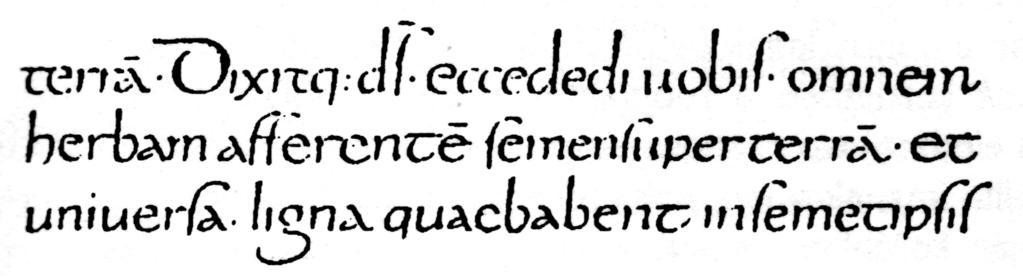 terrā· Dixitq: dſ̄· ecce dedi uobiſ· omnem
herbam afferentē ſemen ſuper terrā· et
uniuerſa· ligna quae habent in ſemetipſiſ